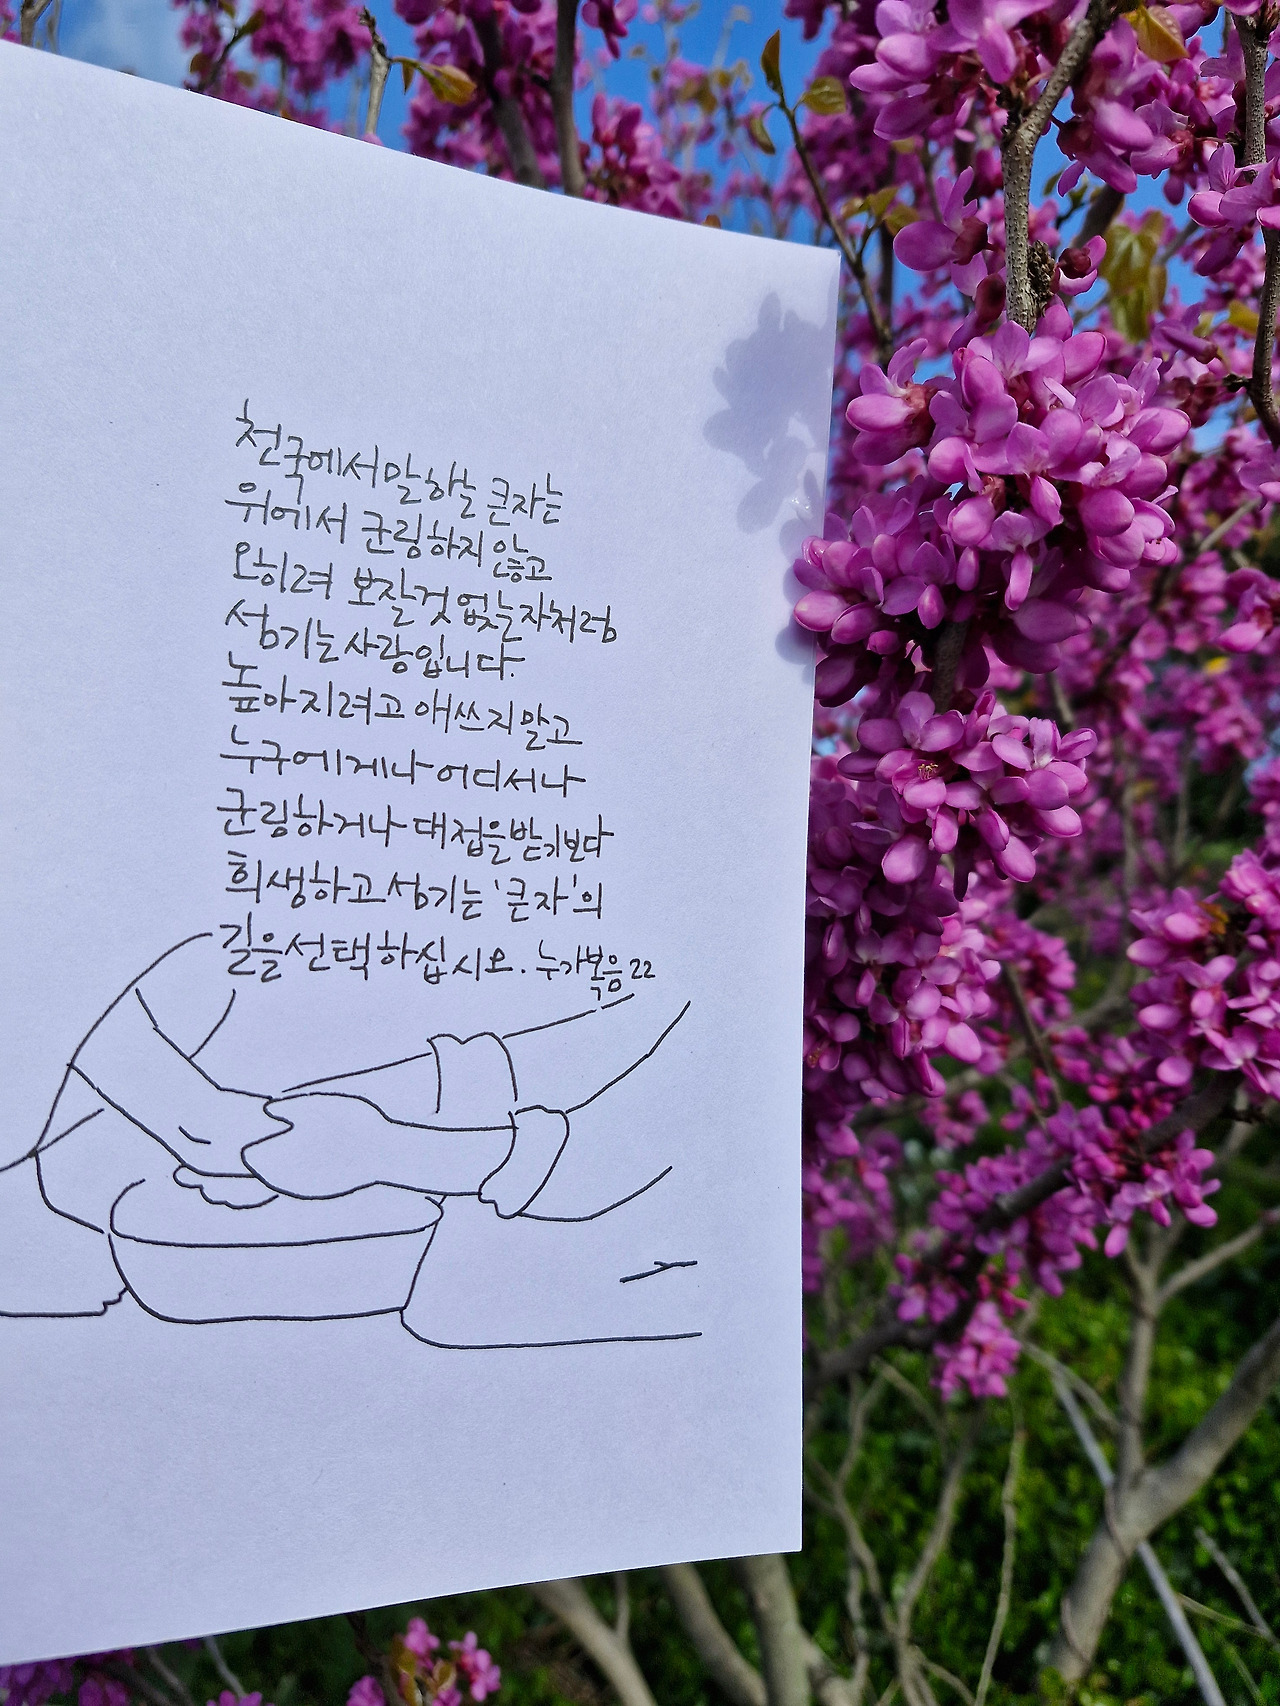 천국에서 말하는 큰 자는
위에서 군림하지 않고
오히려 보잘것 없는 자처럼
섬기는 사람입니다.
높아지려고 애쓰지 말고
누구에게나 어디서나
군림하거나 대접을 받기보다
희생하고 섬기는 '큰 자'의
길을 선택하십시오. 누가복음 22